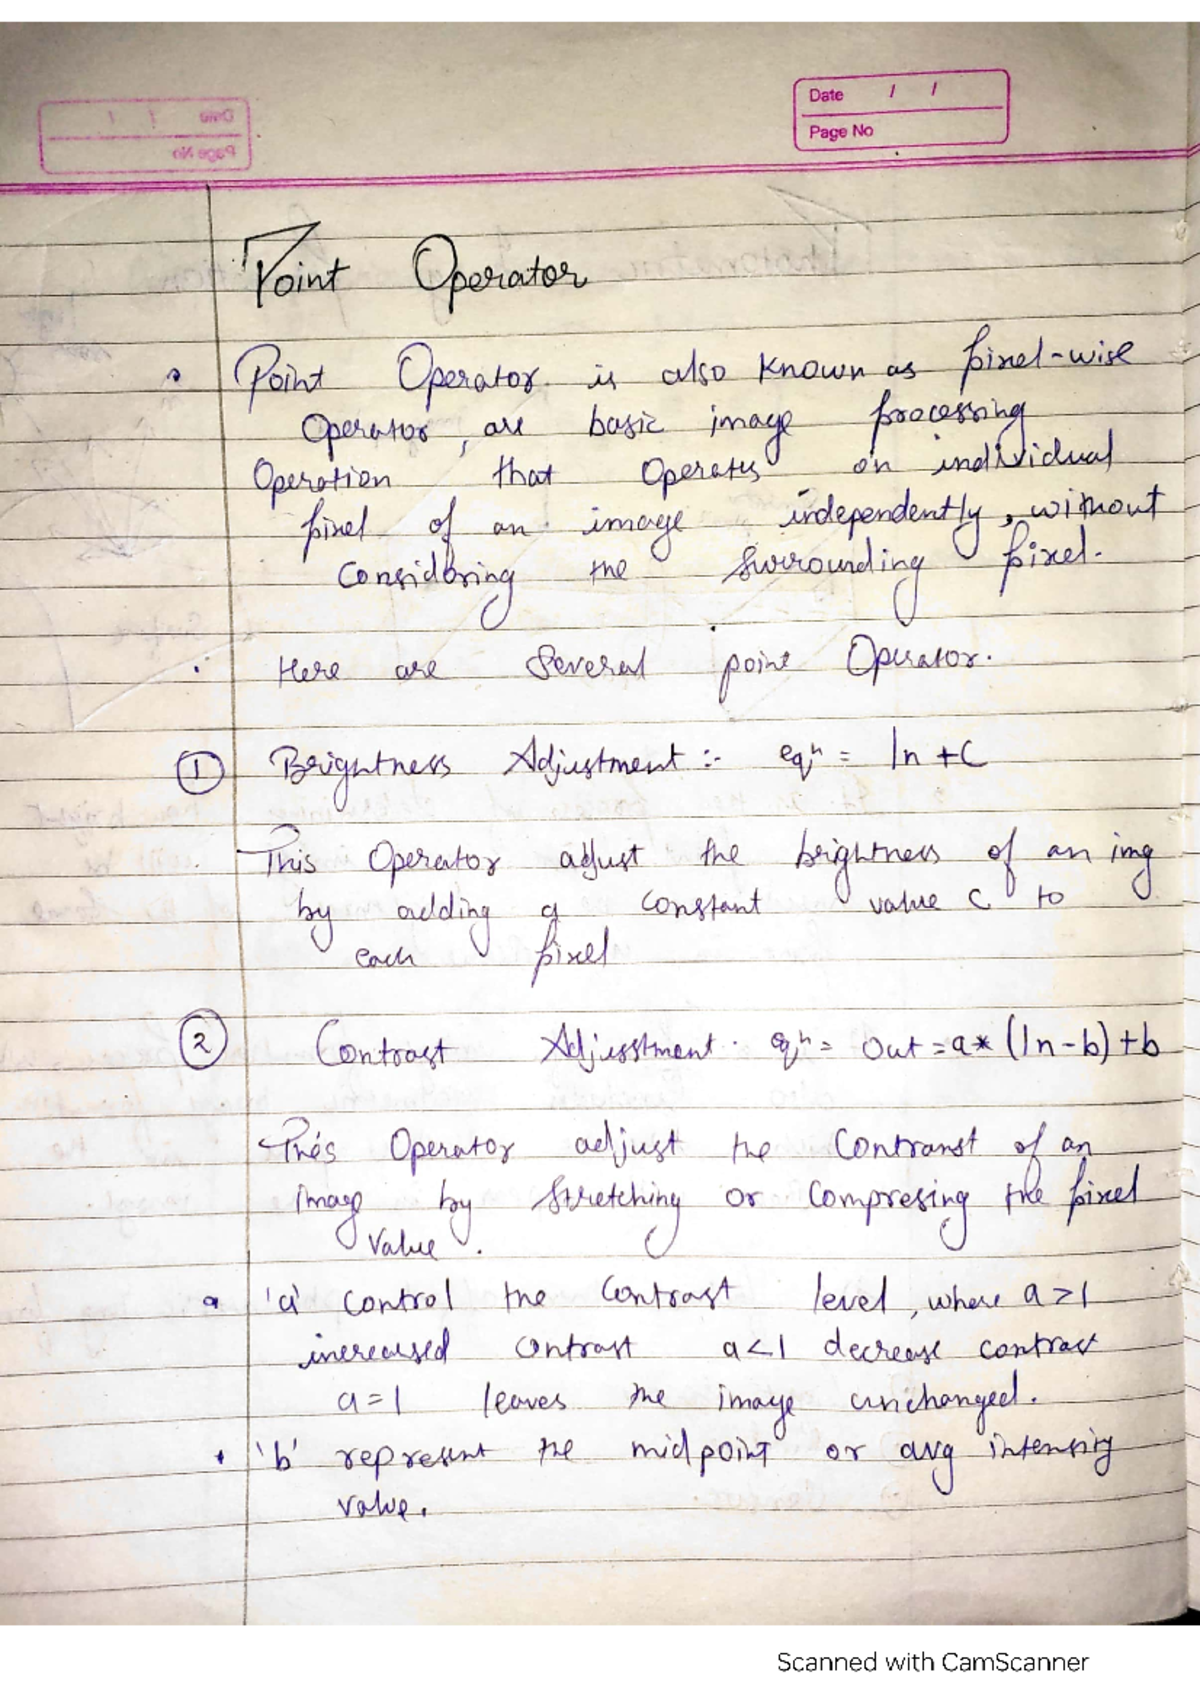 Date / /
Page No
Point Operator
Point Operator is also known as pixel-wise
Operator, are basic image processing
Operation that Operates on individual
pixel of an image independently, without
Considering the Surrounding pixel.
Here are Several point Operator.
1 Brightness Adjustment :- eqn = In + C
This Operator adjust the brightness of an img
by adding a constant value C to
each pixel
2 Contrast Adjusstment. eqn = Out = a* (In - b) + b
This Operator adjust the Contranst of an
Image by Stretching or Compresing the pixel
Value.
'a' control the Contrast level, where a>1
increased contrast a<1 decrease contrast
a=1 leaves the image unchanged.
'b' represent the midpoint or avg intensity
value.
Scanned with CamScanner